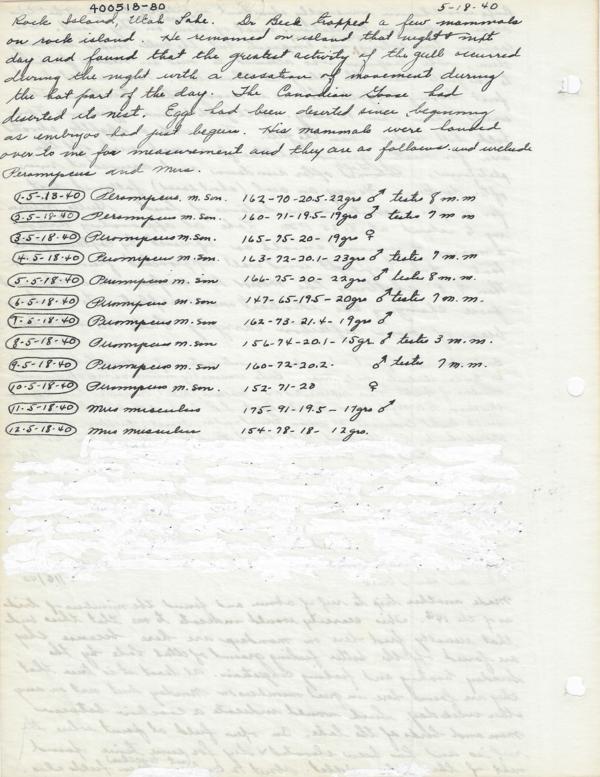 400518-80
5-18-40
Rock Island, Utah Lake. Dr Beck trapped a few mammals
on rock island. He remained on island that night & next
day and found that the greatest activity of the gull occurred
during the night with a cessation of movement during
the hot part of the day. The Canadian Goose had
deserted its nest. Eggs had been deserted since beginning
as embryos had just begun. His mammals were loaned
over to me for measurement and they are as follows and include
Peromyscus and Mus.
1-5-18-40 Peromyscus m. son. 162-70-20.5-22grs ♂ testes 8 m.m
2-5-18-40 Peromyscus m. son. 160-71-19.5-19grs ♂ testes 7 m m
3-5-18-40 Peromyscus m. son. 165-75-20-19grs ♀
4-5-18-40 Peromyscus m. son 163-72-20.1-23grs ♂ testes 7 m.m
5-5-18-40 Peromyscus m. son 166-75-20-22grs ♂ testes 8 m.m.
6-5-18-40 Peromyscus m. son 147-65-19.5-20grs ♂ testes 7 m.m.
7-5-18-40 Peromyscus m. son 162-73-21.4-19grs ♂
8-5-18-40 Peromyscus m. son. 156-74-20.1-15gr. ♂ testes 3 m.m.
9-5-18-40 Peromyscus m. son. 160-72-20.2. ♂ testes 7 m.m.
10-5-18-40 Peromyscus m. son. 152-71-20 ♀
11-5-18-40 Mus musculus 175-91-19.5-17grs ♂
12-5-18-40 Mus musculus 154-78-18-12grs.